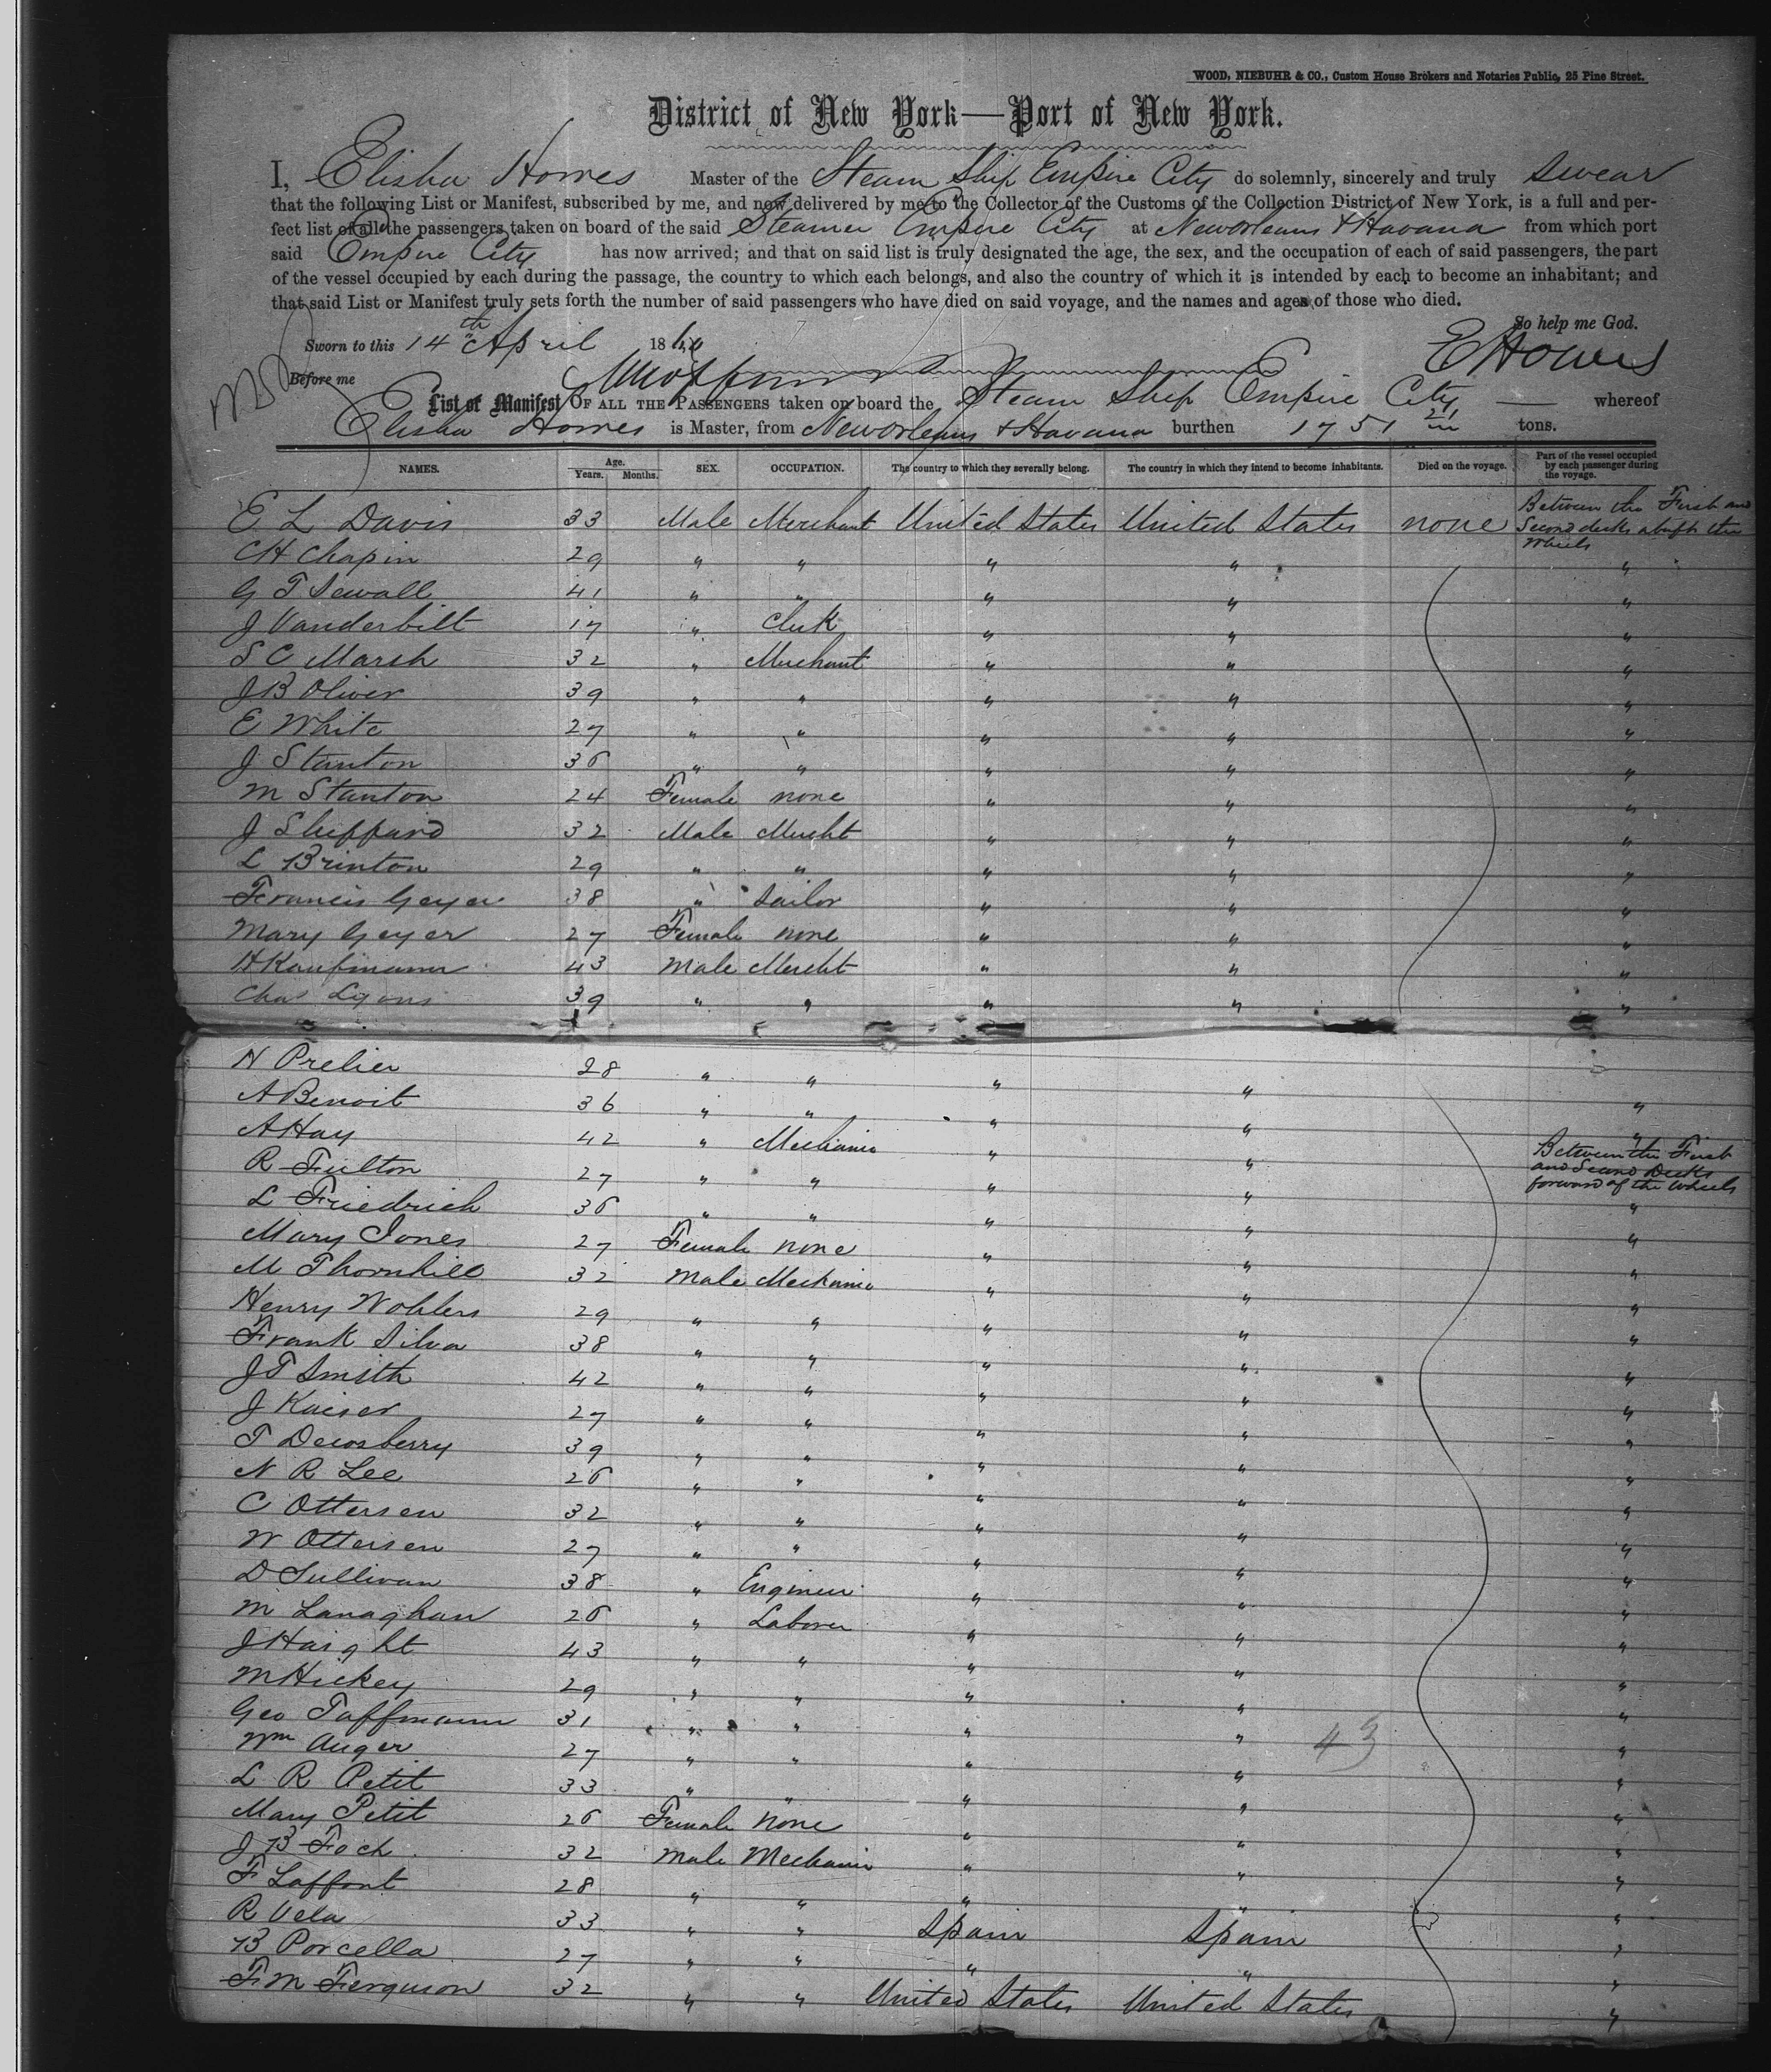 WOOD, NIEBUHR & CO., Custom House Brokers and Notaries Public, 25 Pine Street.
District of New York—Port of New York.
I, Elisha Howes Master of the Steam Ship Empire City do solemnly, sincerely and truly swear
that the following List or Manifest, subscribed by me, and now delivered by me to the Collector of the Customs of the Collection District of New York, is a full and per-
fect list of all the passengers taken on board of the said Steamer Empire City at New Orleans & Havana from which port
said Empire City has now arrived; and that on said list is truly designated the age, the sex, and the occupation of each of said passengers, the part
of the vessel occupied by each during the passage, the country to which each belongs, and also the country of which it is intended by each to become an inhabitant; and
that said List or Manifest truly sets forth the number of said passengers who have died on said voyage, and the names and ages of those who died.
So help me God.
Sworn to this 14th April 1860 E Howes
Before me
List or Manifest OF ALL THE PASSENGERS taken on board the Steam Ship Empire City — whereof
Elisha Howes is Master, from New Orleans & Havana burthen 1751 21 tons.
NAMES. Age. Years. Months. SEX. OCCUPATION. The country to which they severally belong. The country in which they intend to become inhabitants. Died on the voyage. Part of the vessel occupied by each passenger during the voyage.
E L Davis 33 Male Merchant United States United States none Between the First and Second decks abaft the Wheels
C H Chapin 29 " " " " "
G T Sewall 41 " " " " "
J Vanderbilt 17 " Clerk " " "
S C Marsh 32 " Merchant " " "
J B Oliver 39 " " " " "
E White 27 " " " " "
J Stanton 36 " " " " "
M Stanton 24 Female none " " "
J Sheppard 32 Male Mercht " " "
L Brinton 29 " " " " "
Francis Geyer 38 " Sailor " " "
Mary Geyer 27 Female none " " "
H Kaufmann 43 Male Mercht " " "
Chas Lyons 39 " " " " "
H Prelier 28 " " " "
A Benoit 36 " " " " "
A Hay 42 " Mechanic " " "
R Fulton 27 " " " " Between the First and Second Decks forward of the Wheels
L Friedrich 36 " " " " "
Mary Jones 27 Female none " " "
M Thornhill 32 Male Mechanic " " "
Henry Wohlers 29 " " " " "
Frank Silva 38 " " " " "
J T Smith 42 " " " " "
J Kaiser 27 " " " " "
T Dewsberry 39 " " " " "
N R Lee 26 " " " " "
C Ottersen 32 " " " " "
W Ottersen 27 " " " " "
D Sullivan 38 " Engineer " " "
M Lanaghan 26 " Laborer " " "
J Haight 43 " " " " "
M Hickey 29 " " " " "
Geo Taffmann 31 " " " " "
Wm Auger 27 " " " 43 "
L R Petit 33 " " " " "
Mary Petit 26 Female None " " "
J B Foch 32 Male Mechanic " " "
F Laffont 28 " " " " "
R Vela 33 " " Spain Spain "
B Porcella 27 " " " " "
F M Ferguson 32 " " United States United States "